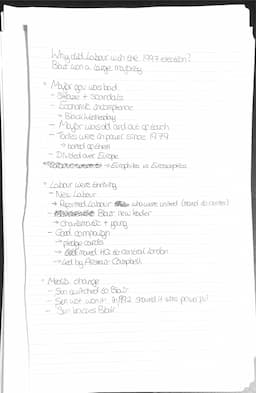 Why did Labour win the 1997 election?
Blair won a large majority
• Major gov was bad
- Sleaze + scandals
- Economic incompetence
→ Black Wednesday
- Major was old and out of touch
- Tories were in power since 1979
→ bored of them
- Divided over Europe
→ Europhiles vs Eurosceptics
• Labour were thriving
- New Labour
→ Reformed Labour who were united (moved to center)
Blair new leader
→ charismatic + young
- Good campaign
→ pledge cards
→ moved HQ to central London
→ Led by Alastair Campbell
• Media change
- Sun switched to Blair
- Sun wot won it 1992 showed it was powerful
- 'Sun backs Blair'